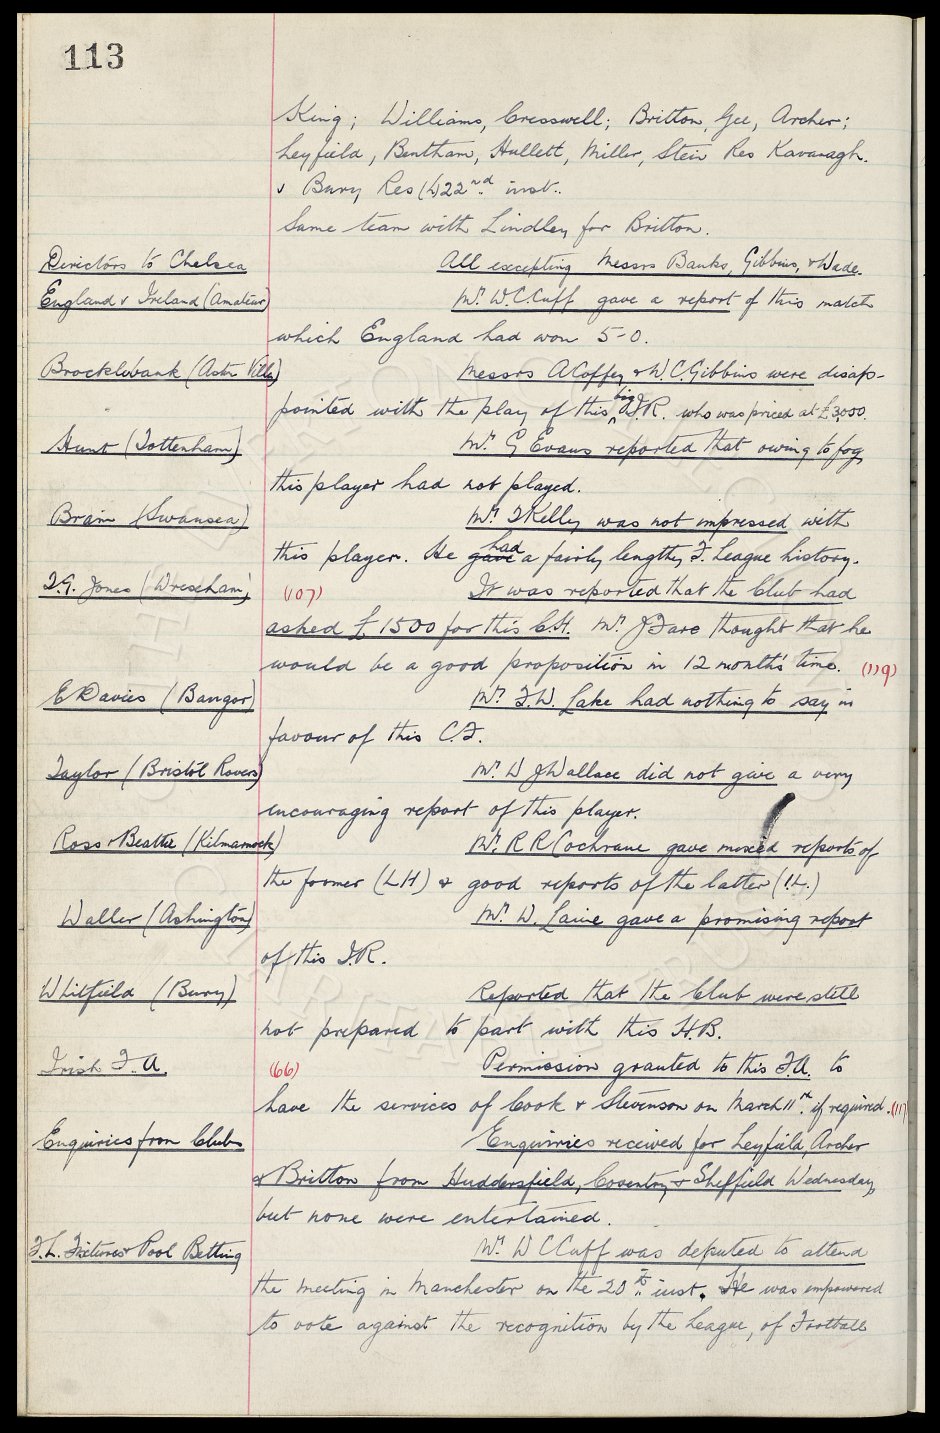 113
King; Williams, Cresswell; Britton, Gee, Archer;
Leyfield, Bentham, Hullett, Miller, Stein Res Kavanagh.
v Bury Res (H) 22nd inst..
Same team with Lindley for Britton.
Directors to Chelsea All excepting Messrs Banks, Gibbins, & Wade.
England v Ireland (Amateur) Mr. W.C. Cuff gave a report of this match
which England had won 5-0.
Brocklebank (Aston Villa) Messrs A Coffey & W.C. Gibbins were disap-
pointed with the play of this big I.R. who was priced at £3,000.
Hunt (Tottenham) Mr. G Evans reported that owing to fog
this player had not played.
Brain (Swansea) Mr. T Kelly was not impressed with
this player. He gave had a fairly lengthy F. League history.
T.G. Jones (Wrexham) (107) It was reported that the Club had
asked £1500 for this C.H. Mr. J Fare thought that he
would be a good proposition in 12 month's time. (119)
E Davies (Bangor) Mr. F.W. Lake had nothing to say in
favour of this C.F.
Taylor (Bristol Rovers) Mr. W J Wallace did not give a very
encouraging report of this player.
Ross & Beattie (Kilmarnock) Mr. R R Cochrane gave mixed reports of
the former (LH) & good reports of the latter (I.L.)
Waller (Ashington) Mr. W. Laine gave a promising report
of this I.R.
Whitfield (Bury) Reported that the Club were still
not prepared to part with this H.B.
Irish F.A. (66) Permission granted to this F.A. to
have the services of Cook & Stevenson on March 11th. if required. (117)
Enquiries from Clubs Enquiries received for Leyfield, Archer
& Britton from Huddersfield, Coventry & Sheffield Wednesday
but none were entertained.
F.L. Fixtures & Pool Betting Mr. W C Cuff was deputed to attend
the meeting in Manchester on the 20th inst. He was empowered
to vote against the recognition by the League, of Football